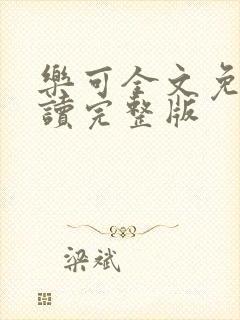 樂可全文免
讀完整版
梁斌